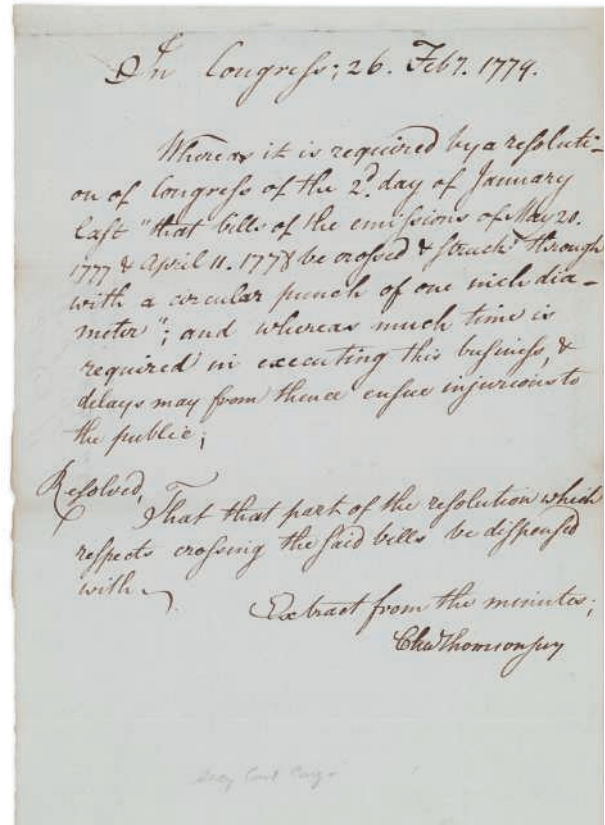 In Congress; 26. Feb7. 1779.
Whereas it is required by a resoluti-
on of Congress of the 2d. day of January
last "that bills of the emissions of May 20.
1777 & April 11. 1778 be crossed & struck through
with a circular punch of one inch dia-
meter"; and whereas much time is
required in executing this business, &
delays may from thence ensue injurious to
the public;
Resolved,
That that part of the resolution which
respects crossing the said bills be dispensed
with.
Extract from the minutes;
Cha Thomson secy